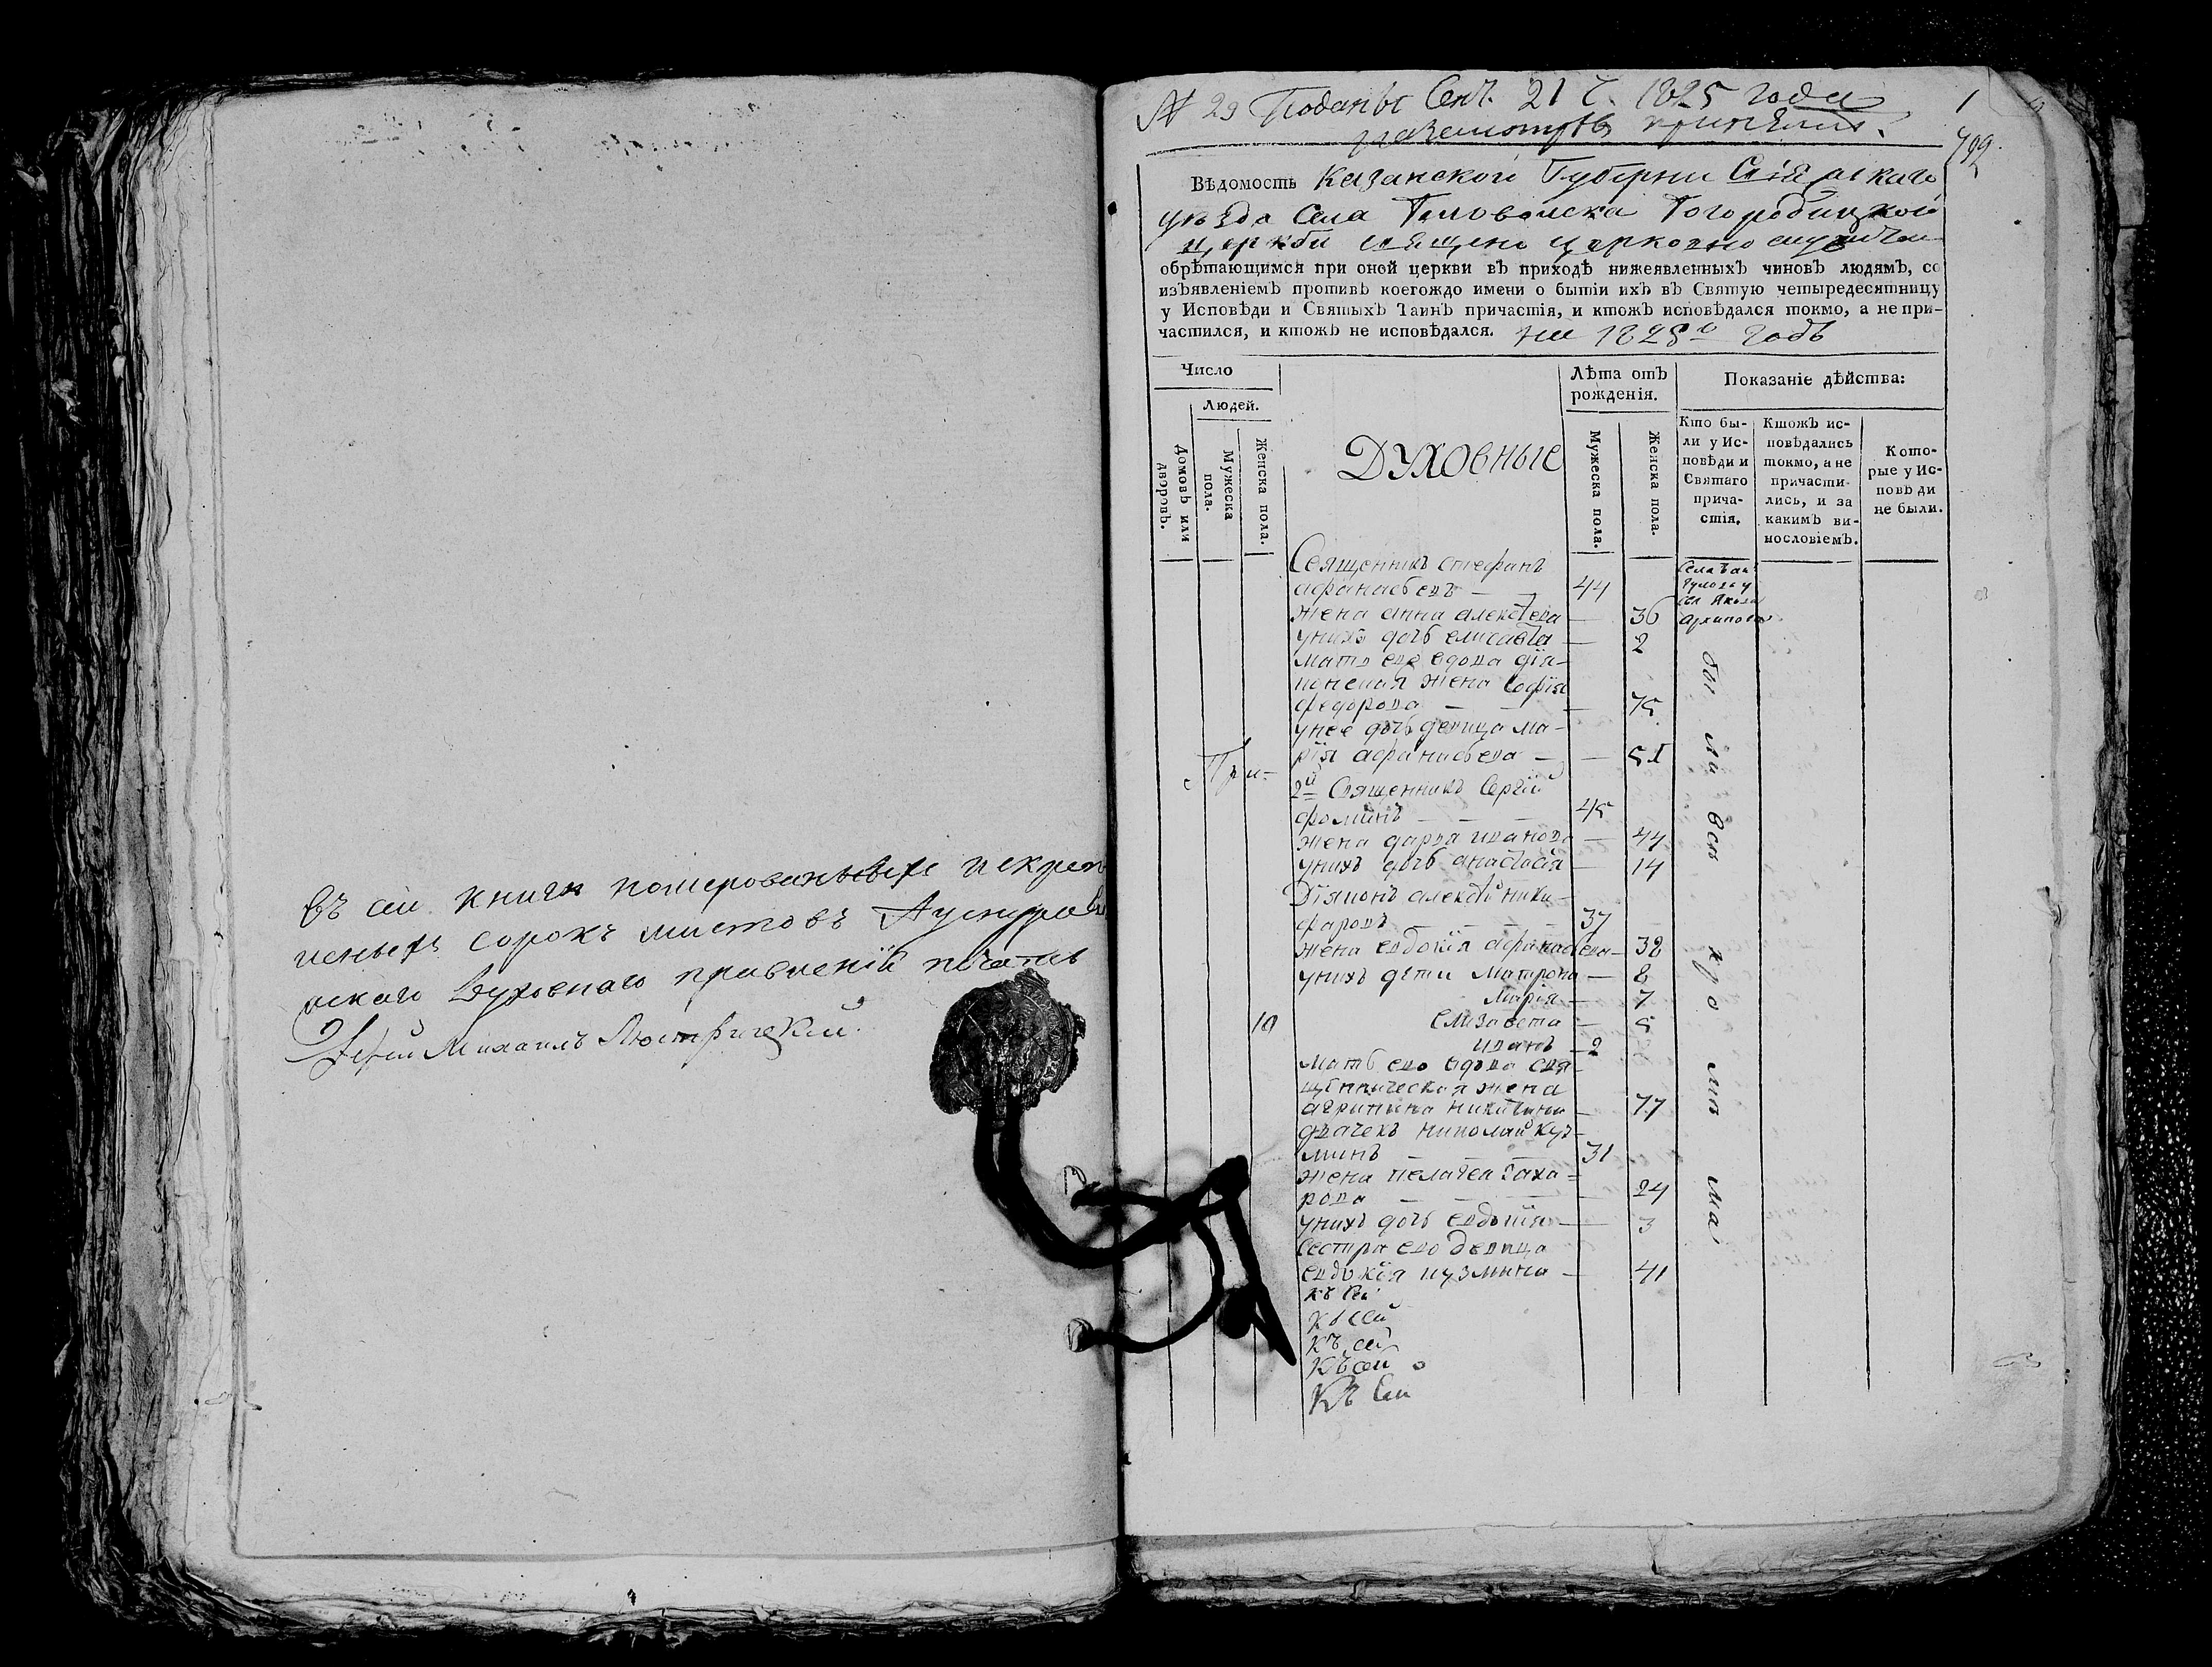 въ сей книги номерованныхъ искреп
леныхъ сорокъ листовъ
скаго Духовнаго правленїя печать
Іерей Михаилъ
№ 29 Поданы Сент. 21 ч. 1825 года
1
799
Вѣдомость Казанской Губернїи Свїяжскаго
уѣзда Села Богородицкой
церкви священно церковно служител
обрѣтающимся при оной церкви въ приходѣ нижеявленныхъ чиновъ людямъ, со
изъявленіемъ противъ коегождо имени о бытіи ихъ въ Святую четыредесятницу
у Исповѣди и Святыхъ Таинъ причастія, и ктожъ исповѣдался токмо, а не при-
частился, и ктожъ не исповѣдался. на 1825й годъ
Число
Людей.
Домовъ или дворовъ.
Мужеска пола.
Женска пола.
ДУХОВНЫЕ
Лѣта отъ рожденія.
Мужеска пола.
Женска пола.
Показаніе дѣйства:
Кто бы-
ли у Ис-
повѣди и
Святаго
прича-
стія.
Ктожъ ис-
повѣдались
токмо, а не
причасти-
лись, и за
какимъ ви-
нословіемъ.
Кото-
рые у Ис-
повѣди
не были.
Священникъ стефанъ
афанасьевъ — 44
жена анна алексѣева — 36
унихъ дочь елисавета — 2
мать ево вдова дїя-
конская жена софїя
федорова — 75
унее дочь девица ма-
рїя афанасьева — 51
2й Священникъ Сергїй
фоминъ — 45
жена дарья иванова — 44
унихъ дочь анастасїя — 14
Дїяконъ алексѣй ники-
фаровъ — 37
жена евдокїя афанасьева — 32
унихъ дѣти Матрона — 8
Марїя — 7
10 Елизавета — 5
иванъ — 2
мать ево вдова свя-
щенническая жена
агрипина никитина — 77
дьячекъ николай куз-
минъ — 31
жена пелагея Заха-
рова — 24
унихъ дочь евдокїя — 3
Сестра ево девица
евдокїя кузмина — 41
къ сей
къ сей
къ сей
къ сей
Къ сей
Села
Архипова
бы ли всѣ кро мѣ ма
При-